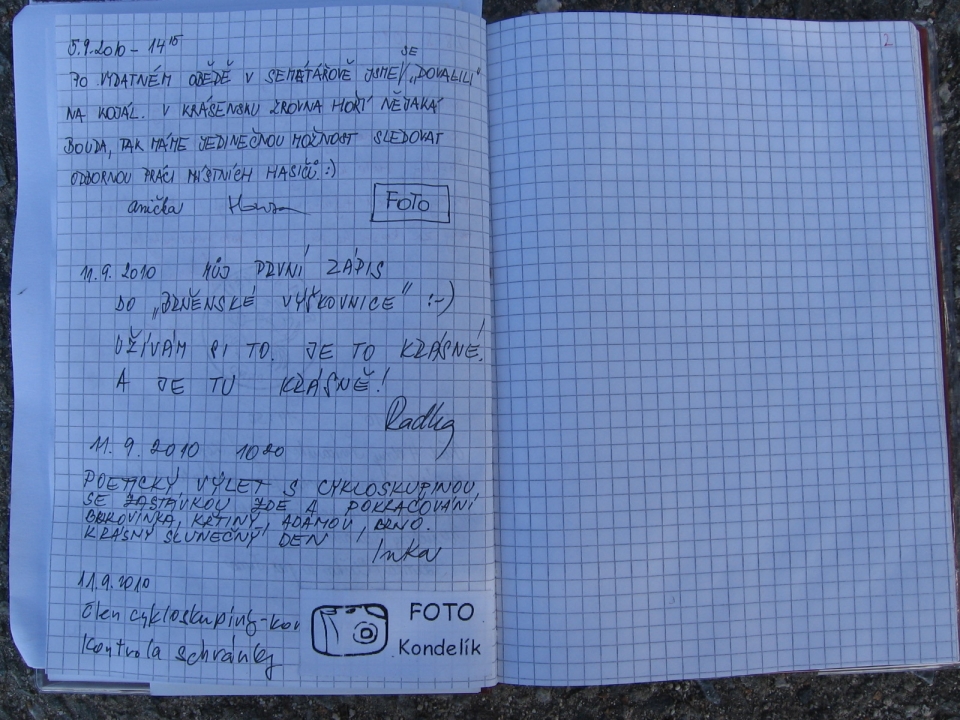 5.9.2010 – 14¹⁵
PO VYDATNÉM OBĚDĚ V SEMĚTÁŘOVĚ JSME SE „DOVALILI"
NA KOJÁL. V KRÁSENSKU ZROVNA HOŘÍ NĚJAKÁ
BOUDA, TAK MÁME JEDINEČNOU MOŽNOST SLEDOVAT
ODBORNOU PRÁCI MÍSTNÍCH HASIČŮ :)
Anička
FOTO
11.9.2010 MŮJ PRVNÍ ZÁPIS
DO „BRNĚNSKÉ VÝŠKOVNICE" :-)
UŽÍVÁM SI TO. JE TO KRÁSNÉ!
A JE TU KRÁSNĚ!
Radka
11.9.2010 1020
POETICKÝ VÝLET S CYKLOSKUPINOU,
SE ZASTÁVKOU ZDE A POKRAČOVÁNÍ
BUKOVINKA, KŘTINY, ADAMOV, BRNO.
KRÁSNÝ SLUNEČNÝ DEN
Inka
11.9.2010
Člen cykloskupiny - kon
Kontrola schránky
FOTO
Kondelík
2